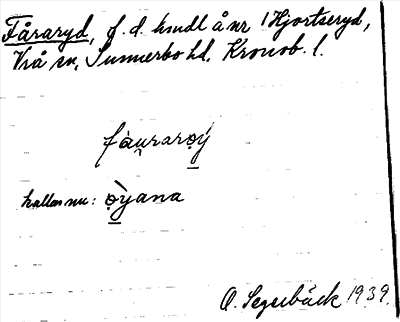 Fåraryd, f. d. hmdl å nr 1 Hjortseryd,
Vrå sn, Sunnerbo hd, Kronob. l.
fàu̯rarọý
kallas nu: ọ̀yana
O. Segerbäck 1939.